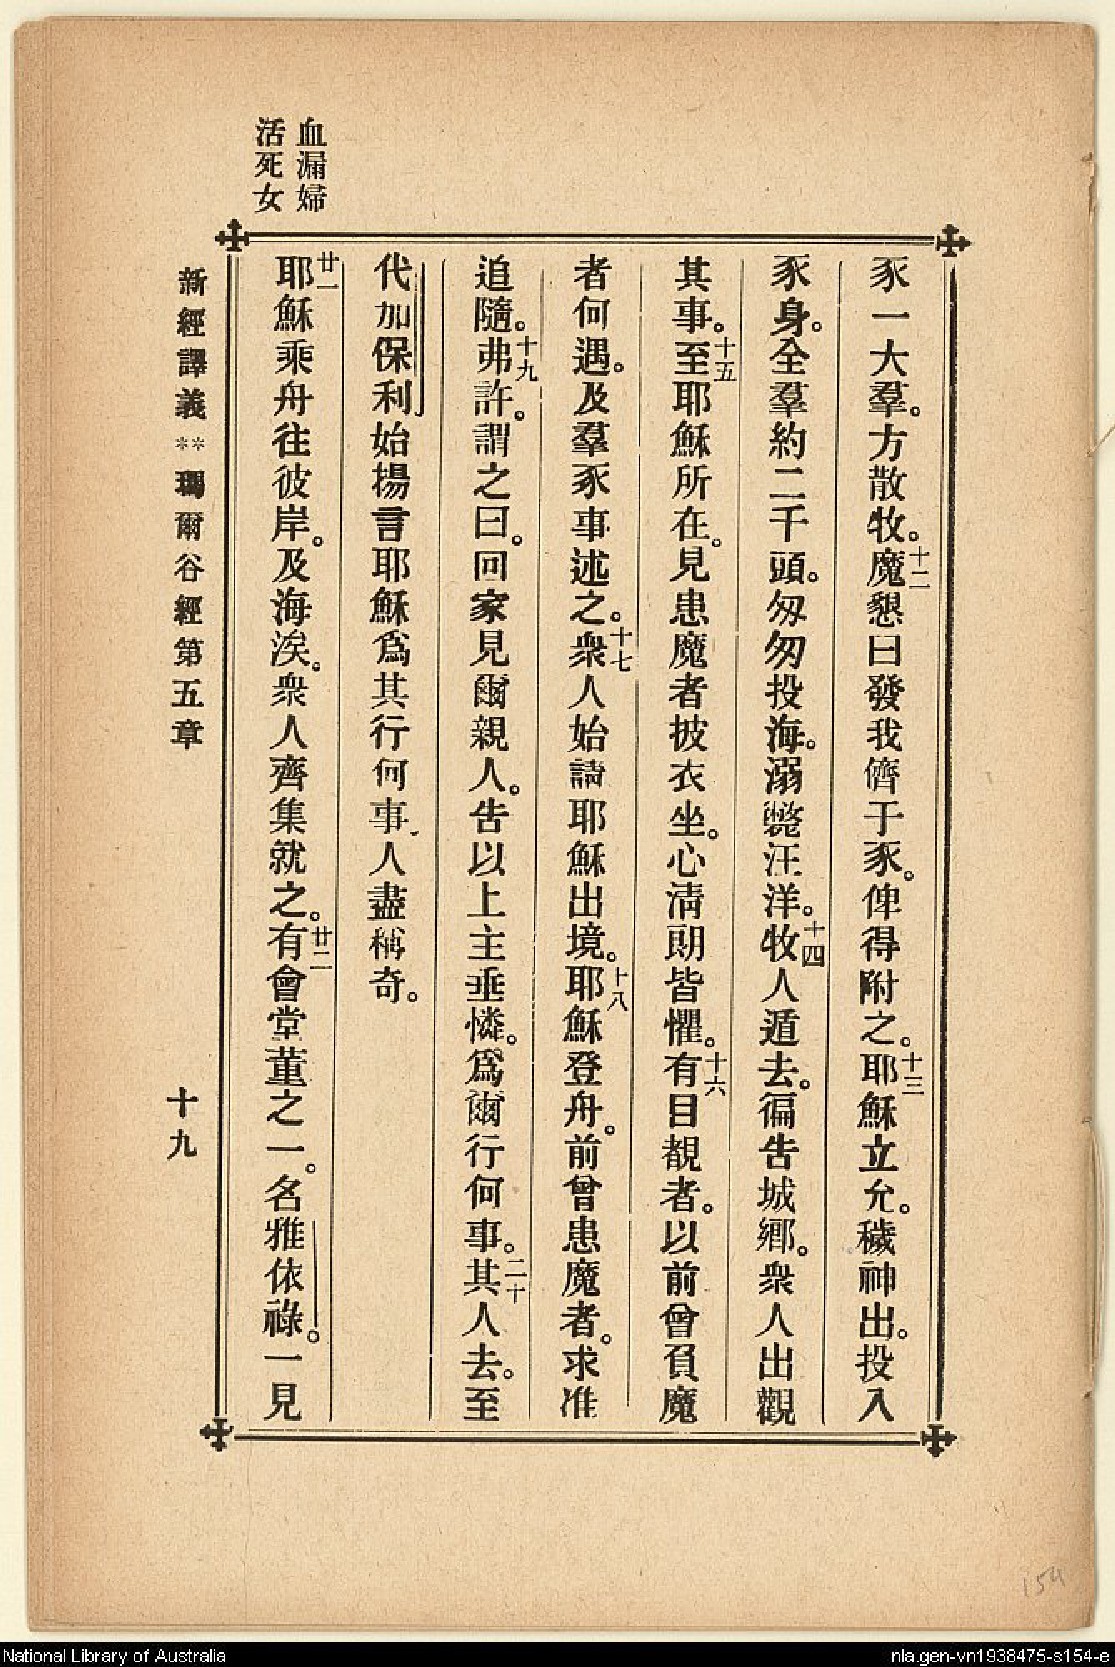 血漏婦
活死女
豕一大羣。方散牧。十二魔懇曰發我儕于豕。俾得附之。十三耶穌立允。穢神出。投入
豕身。全羣約二千頭。匆匆投海。溺斃汪洋。十四牧人遁去。徧告城鄉。衆人出觀
其事。十五至耶穌所在。見患魔者披衣坐。心淸朗皆懼。十六有目覩者。以前曾負魔
者何遇。及羣豕事述之。十七衆人始請耶穌出境。十八耶穌登舟。前曾患魔者。求准
追隨。十九弗許。謂之曰。回家見爾親人。告以上主垂憐。爲爾行何事。二十其人去。至
代加保利始揚言耶穌爲其行何事、人盡稱奇。
廿一耶穌乘舟往彼岸。及海涘。衆人齊集就之。廿二有會堂董之一。名雅依祿。一見
新經譯義**瑪爾谷經第五章 十九
154
National Library of Australia
nla.gen-vn1938475-s154-e